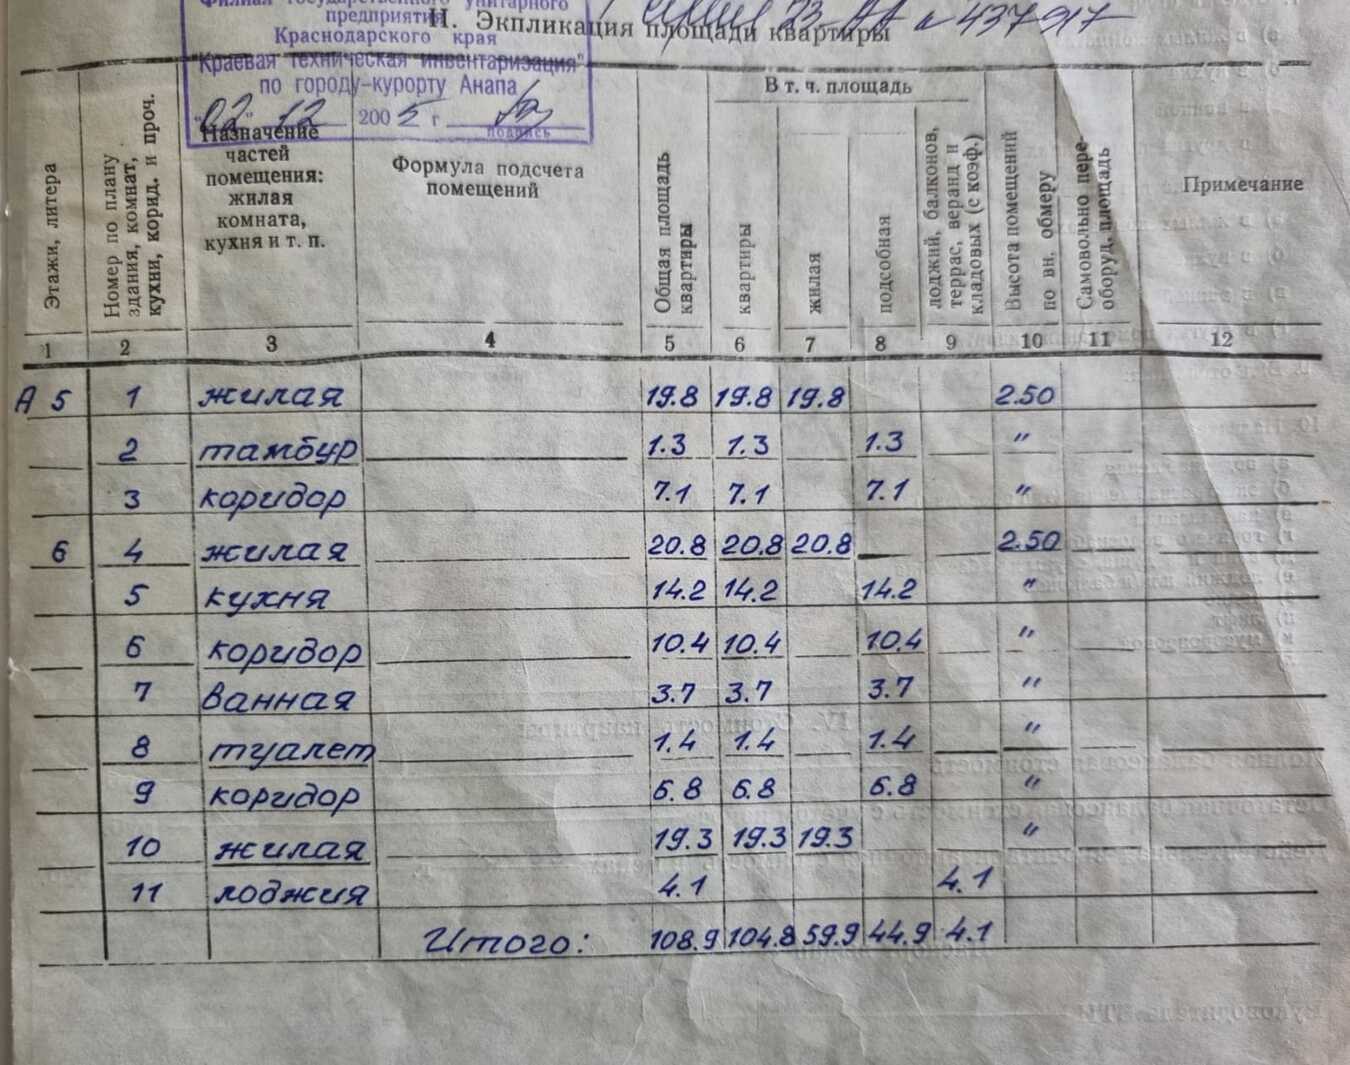 Филиал государственного унитарного
предприятия
Краснодарского края
"Краевая техническая инвентаризация"
по городу-курорту Анапа
"02" 12 2005 г
подпись
23-АА № 437917
II. Экпликация площади квартиры
Этажи, литера
Номер по плану здания, комнат, кухни, корид. и проч.
Назначение
частей
помещения:
жилая
комната,
кухня и т. п.
Формула подсчета
помещений
Общая площадь квартиры
В т. ч. площадь
квартиры
жилая
подсобная
лоджий, балконов, террас, веранд и кладовых (с коэф.)
Высота помещений по вн. обмеру
Самовольно пере- оборуд. площадь
Примечание
1 2 3 4 5 6 7 8 9 10 11 12
А 5 1 жилая 19.8 19.8 19.8 2.50
2 тамбур 1.3 1.3 1.3 "
3 коридор 7.1 7.1 7.1 "
6 4 жилая 20.8 20.8 20.8 2.50
5 кухня 14.2 14.2 14.2 "
6 коридор 10.4 10.4 10.4 "
7 ванная 3.7 3.7 3.7 "
8 туалет 1.4 1.4 1.4 "
9 коридор 6.8 6.8 6.8 "
10 жилая 19.3 19.3 19.3 "
11 лоджия 4.1 4.1
Итого: 108.9 104.8 59.9 44.9 4.1